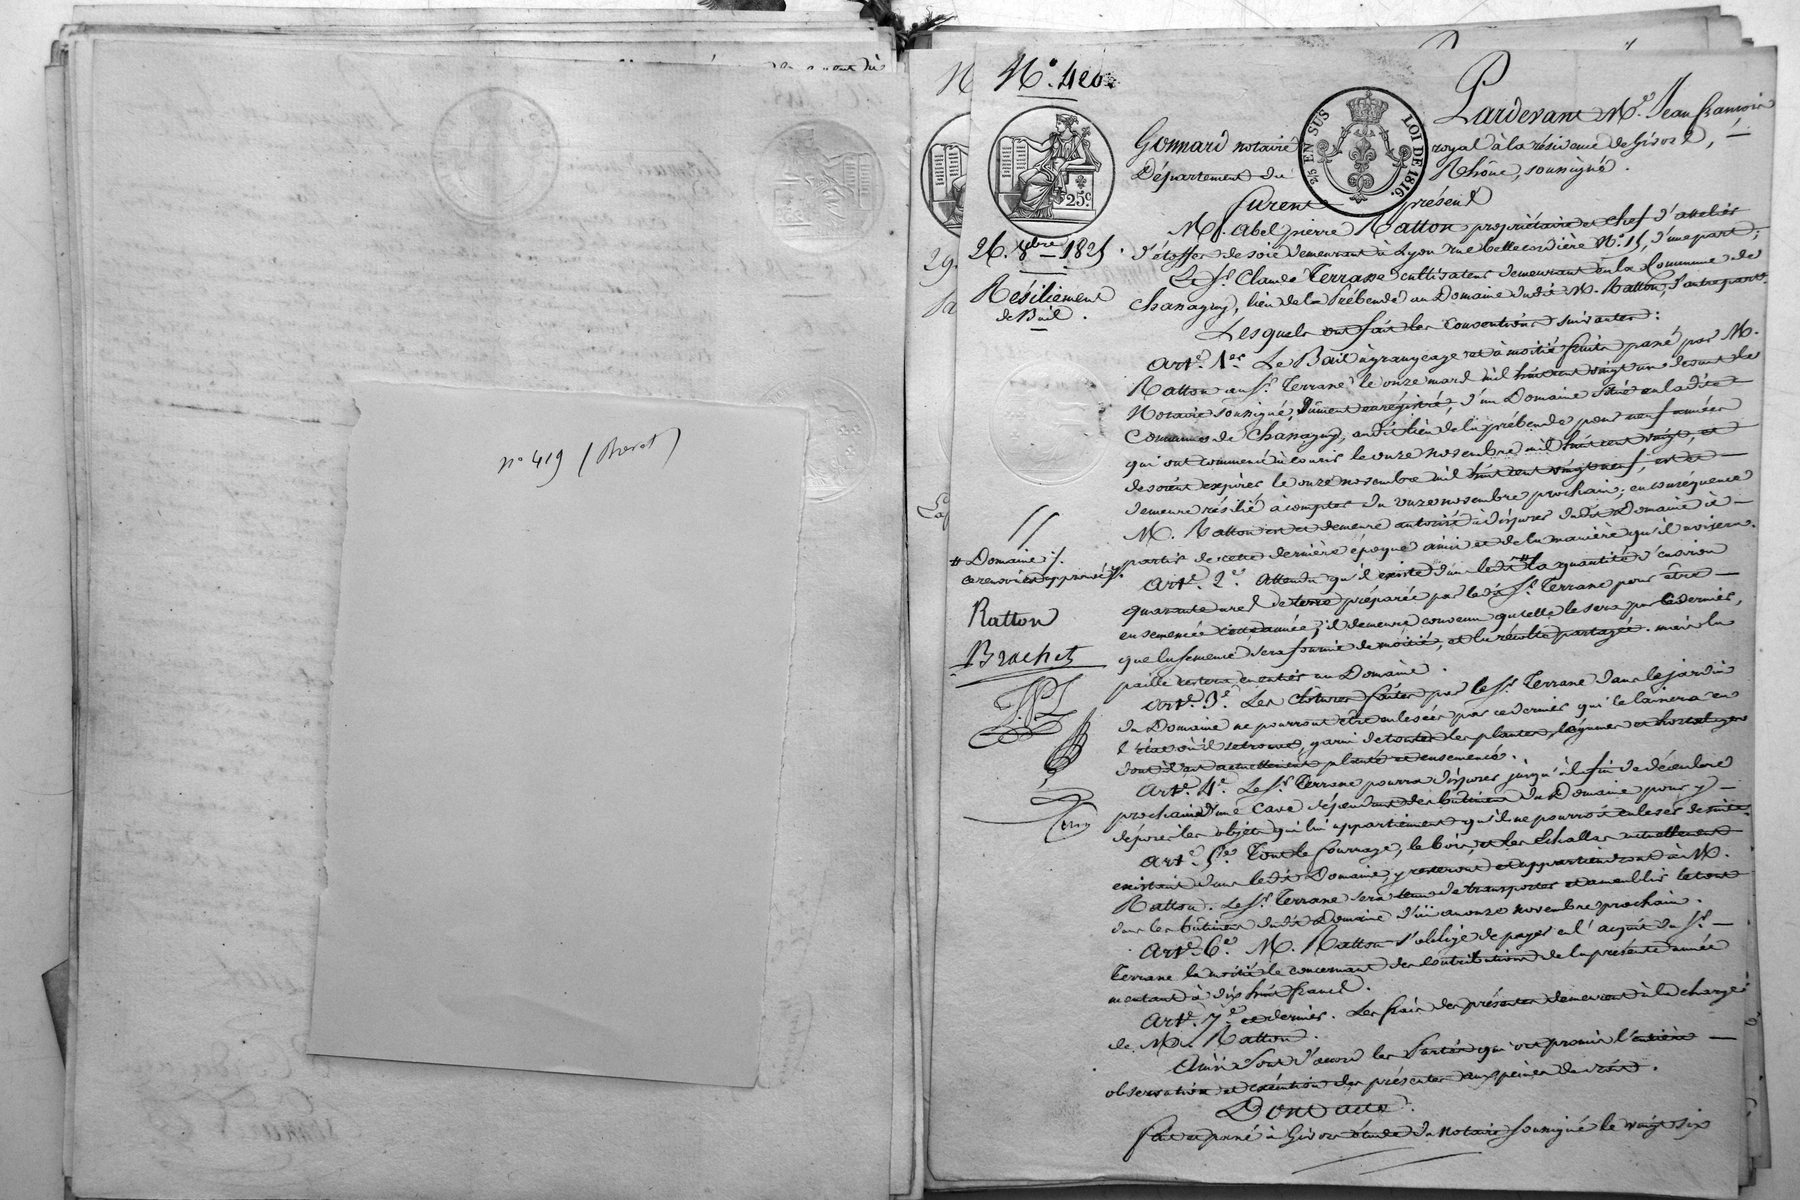 n° 419 (Brevet)
N°. 420.
25 EN SUS
LOI DE 1816.
25c
26. 8bre 1825.
Résiliement
de Bail.
Pardevant Me. Jean François
Gonnard notaire royal à la résidence de Givors,
Département du Rhône, soussigné.
Furent présent
M. Abel pierre Ratton propriétaire et chef d'atelier
d'étoffes de soie demeurant à Lyon rue Bellecordière N°. 15, d'une part;
Le Sr. Claude Terrasse cultivateur demeurant en la Commune de
Chassagny, lieu de la Prébende au Domaine dudit M. Ratton, d'autre part.
Lesquels ont fait les Conventions suivantes:
Arte. 1er. Le Bail à grangeage et à moitié fruits passé par M.
Ratton au Sr. Terrasse le onze mars mil huit cent vingt un devant le
Notaire soussigné, dûment enrégistré, d'un Domaine situé en ladite
Commune de Chassagny, audit lieu de la prébende pour neuf années
qui ont commencé à courir le onze novembre mil huit cent vingt, et
devoient expirer le onze novembre mil huit cent vingt neuf, est et
demeure résilié à compter du onze novembre prochain; en conséquence
M. Ratton est et demeure autorisé à disposer dudit Domaine à
partir de cette dernière époque ainsi et de la manière qu'il avisera.
Arte. 2e. Attendu qu'il existe dans ledit # la quantité d'environ
quarante ares de terre préparée par ledit Sr. Terrasse pour être
ensemencée cette année, il demeure convenu qu'elle le sera par ce dernier,
que la semence sera fournie de moitié, et la récolte partagée. mais la
paille restera en entier au Domaine.
Arte. 3e. Les Clotures faites par le Sr. Terrasse dans le jardin
du Domaine ne pourront être enlevées par ce dernier qui le laissera en
l'état où il se trouve, garni de toutes les plantes, légumes et hortolages
dont il est actuellement planté et ensemencé.
Arte. 4e. Le Sr. Terrasse pourra disposer jusqu'à la fin de décembre
prochain d'une cave dépendant des bâtimens du Domaine pour y
déposer les objets qui lui appartiennent qu'il ne pourroit enlever de suite
Arte. 5e. Tout le fourrage, le bois, et les Echallas actuellement
existant dans ledit Domaine, y resteront et appartiendront à M.
Ratton. Le Sr. Terrasse sera tenu de transporter et ameublir le tout
dans les bâtimens dudit Domaine d'ici au onze novembre prochain.
Arte. 6e. M. Ratton s'oblige de payer en l'acquit du Sr.
Terrasse la moitié le concernant des Contributions de la présente année
montant à dix huit francs.
Arte. 7e. et dernier. Les frais des présentes demeurent à la charge
de M. Ratton.
Ainsi sont d'accord les Parties qui ont promis l'entière
observation et exécution des présentes aux peines de droit.
Dont acte.
fait et passé à Givors étude du Notaire soussigné le vingt six
# Domaine /.
ce renvoi est approuvé /.
Ratton
Brachet